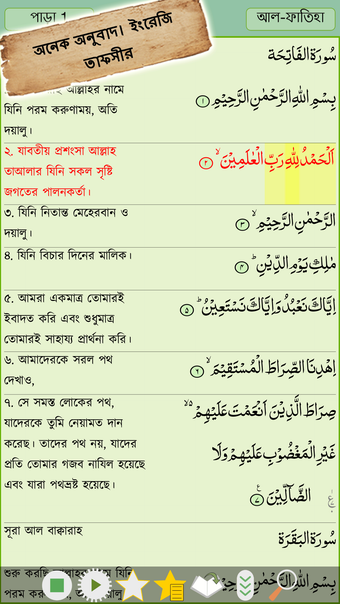 পাড়া 1
আল-ফাতিহা
অনেক অনুবাদ। ইংরেজি
তাফসীর
سُورَةُ الفَاتِحَة
আল্লাহর নামে
যিনি পরম করুণাময়, অতি
দয়ালু।
بِسْمِ اللّٰهِ الرَّحْمٰنِ الرَّحِيْمِ ۝۱
২. যাবতীয় প্রশংসা আল্লাহ
তাআলার যিনি সকল সৃষ্টি
জগতের পালনকর্তা।
اَلْحَمْدُ لِلّٰهِ رَبِّ الْعٰلَمِيْنَ ۙ ۝۲
৩. যিনি নিতান্ত মেহেরবান ও
দয়ালু।
الرَّحْمٰنِ الرَّحِيْمِ ۙ ۝۳
৪. যিনি বিচার দিনের মালিক।
مٰلِكِ يَوْمِ الدِّيْنِ ؕ ۝۴
৫. আমরা একমাত্র তোমারই
ইবাদত করি এবং শুধুমাত্র
তোমারই সাহায্য প্রার্থনা করি।
اِيَّاكَ نَعْبُدُ وَاِيَّاكَ نَسْتَعِيْنُ ؕ ۝۵
৬. আমাদেরকে সরল পথ
দেখাও,
اِهْدِنَا الصِّرَاطَ الْمُسْتَقِيْمَ ۙ ۝۶
৭. সে সমস্ত লোকের পথ,
যাদেরকে তুমি নেয়ামত দান
করেছ। তাদের পথ নয়, যাদের
প্রতি তোমার গজব নাযিল হয়েছে
এবং যারা পথভ্রষ্ট হয়েছে।
صِرَاطَ الَّذِيْنَ اَنْعَمْتَ عَلَيْهِمْ ۙ
غَيْرِ الْمَغْضُوْبِ عَلَيْهِمْ وَلَا
الضَّآلِّيْنَ ۝۷
সূরা আল বাক্বারাহ
سُورَةُ البَقَرَة
শুরু করছি আল্লাহর নামে যিনি
পরম করুণাময়, অতি দয়ালু
بِسْمِ اللّٰهِ الرَّحْمٰنِ الرَّحِيْمِ